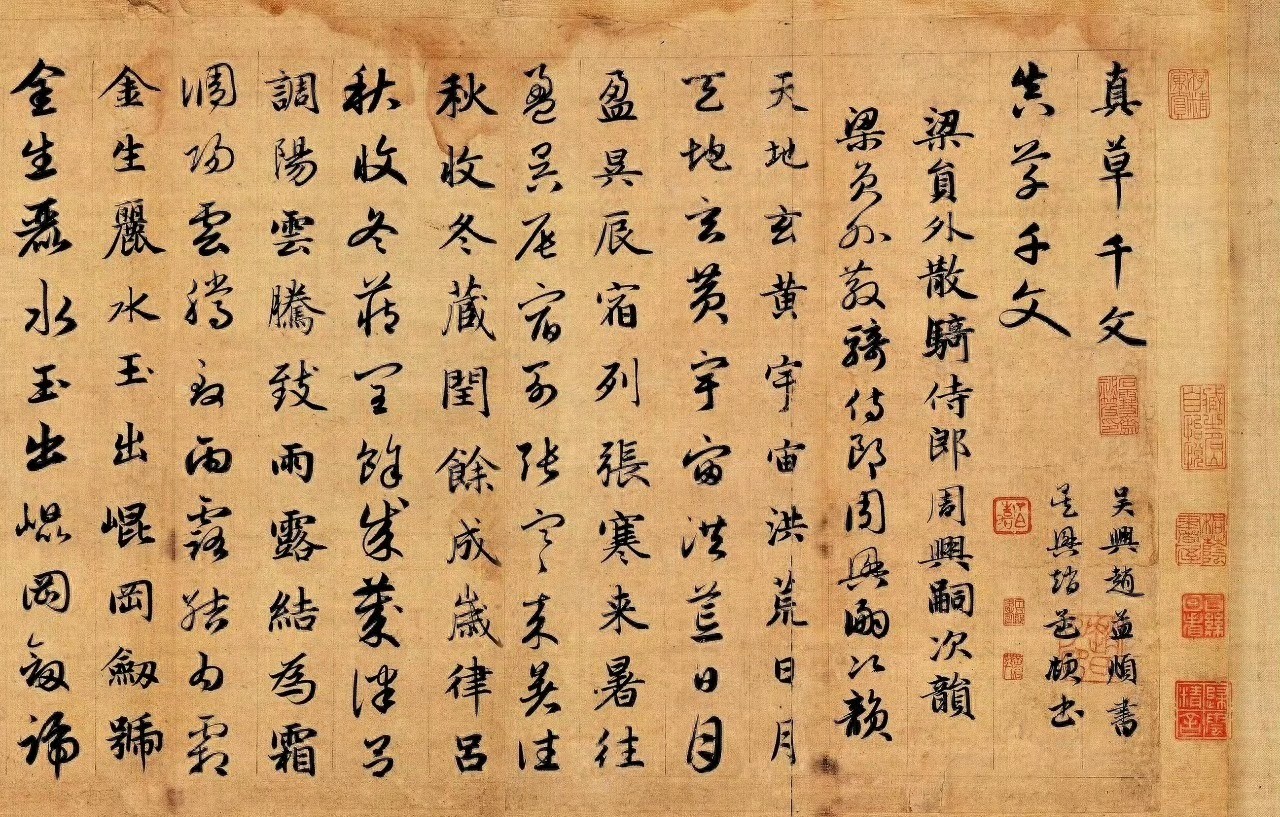 真草千文 吴興趙孟頫書
真草千文 吴興趙孟頫書
梁員外散騎侍郎周興嗣次韻
梁員外散騎侍郎周興嗣次韻
天地玄黄宇宙洪荒日月
天地玄黄宇宙洪荒日月
盈昃辰宿列張寒来暑往
盈昃辰宿列張寒来暑往
秋收冬蔵閏餘成歲律吕
秋收冬蔵閏餘成歲律吕
調陽雲騰致雨露結為霜
調陽雲騰致雨露結為霜
金生麗水玉出崐岡劔號
金生麗水玉出崐岡劔號